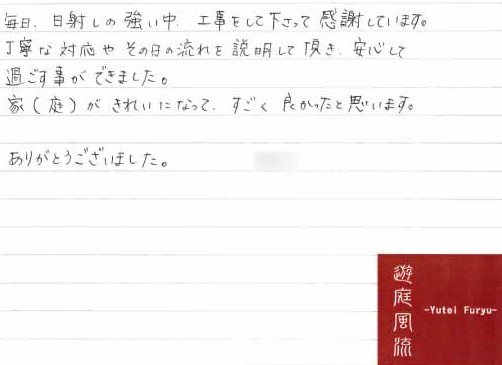 毎日、日射しの強い中、工事をして下さって感謝しています。
丁寧な対応やその日の流れを説明して頂き、安心して
過ごす事ができました。
家(庭)がきれいになって、すごく良かったと思います。
ありがとうございました。
遊庭風流
-Yutei Furyu-